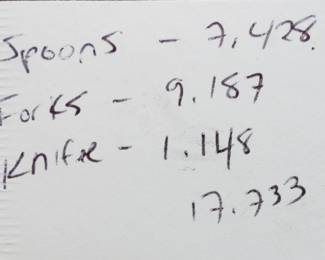 Spoons - 7,428.
Forks - 9.187
Knifxe - 1.148
17.733